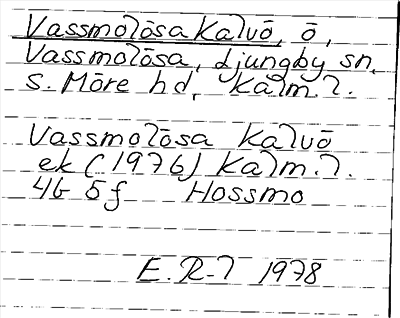 Vassmolösa Kalvö, ö,
Vassmolösa, Ljungby sn,
S. Möre hd, Kalm. l.
Vassmolösa Kalvö
ek (1976) Kalm. l.
4G 5f Hossmo
E. R-l 1978